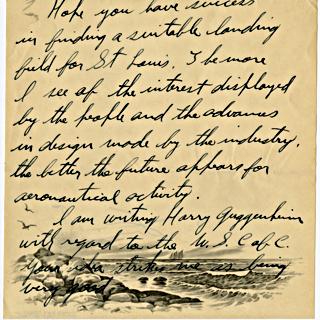 Hope you have success
in finding a suitable landing
field for St Louis. The more
I see of the interest displayed
by the people and the advances
in design made by the industry,
the better the future appears for
aeronautical activity.
I am writing Harry Guggenheim
with regard to the U.S.C of C.
Your idea strikes me as being
very good.